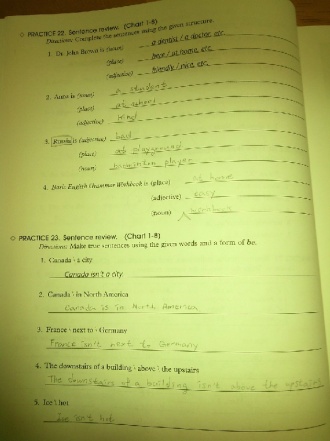 PRACTICE 22. Sentence review. (Chart 1-8)
Directions: Complete the sentences using the given structure.
1. Dr. John Brown is (noun) a dentist / a doctor etc.
(place) here / at home, etc.
(adjective) friendly / nice, etc.
2. Anna is (noun) a student
(place) at school
(adjective) kind
3. is (adjective) bad
(place) at playground
(noun) player
4. Basic English Grammar Workbook is (place) at home
(adjective) easy
(noun)
PRACTICE 23. Sentence review. (Chart 1-8)
Directions: Make true sentences using the given words and a form of be.
1. Canada \ a city
Canada isn't a city.
2. Canada \ in North America
Canada is in North America
3. France \ next to \ Germany
France isn't next to Germany
4. The downstairs of a building \ above \ the upstairs
The downstairs of a building isn't above the upstairs
5. Ice \ hot
Ice isn't hot